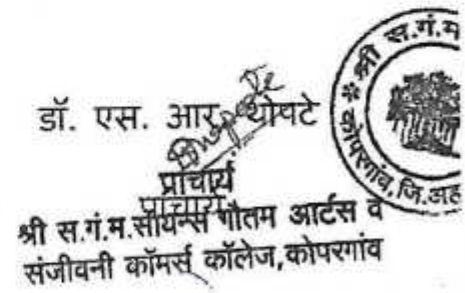 डॉ. एस. आर. थोपटे
प्राचार्य
प्राचार्य
श्री स.गं.म.सायन्स गौतम आर्टस व
संजीवनी कॉमर्स कॉलेज,कोपरगांव
श्री स.गं.म
कोपरगांव, जि.अह